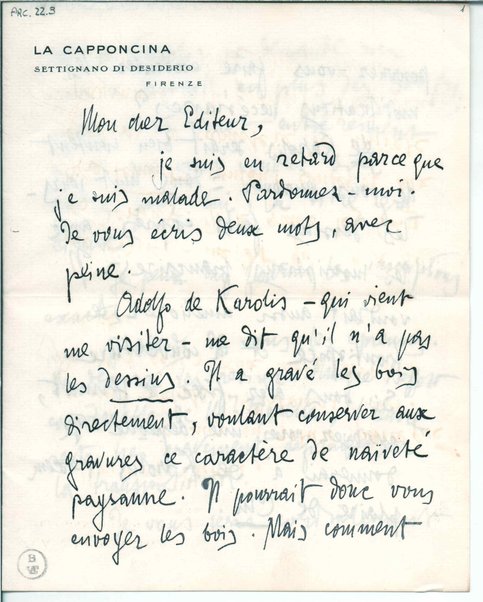 ARC. 22.3
1
LA CAPPONCINA
SETTIGNANO DI DESIDERIO
FIRENZE
Mon cher Editeur,
je suis en retard parce que
je suis malade. Pardonnez-moi.
Je vous écris deux mots, avec
peine.
Adolfo de Karolis – qui vient
me visiter – me dit qu'il n'a pas
les dessins. Il a gravé les bois
directement, voulant conserver aux
gravures ce caractère de naïveté
paysanne. Il pourrait donc vous
envoyer les bois. Mais comment